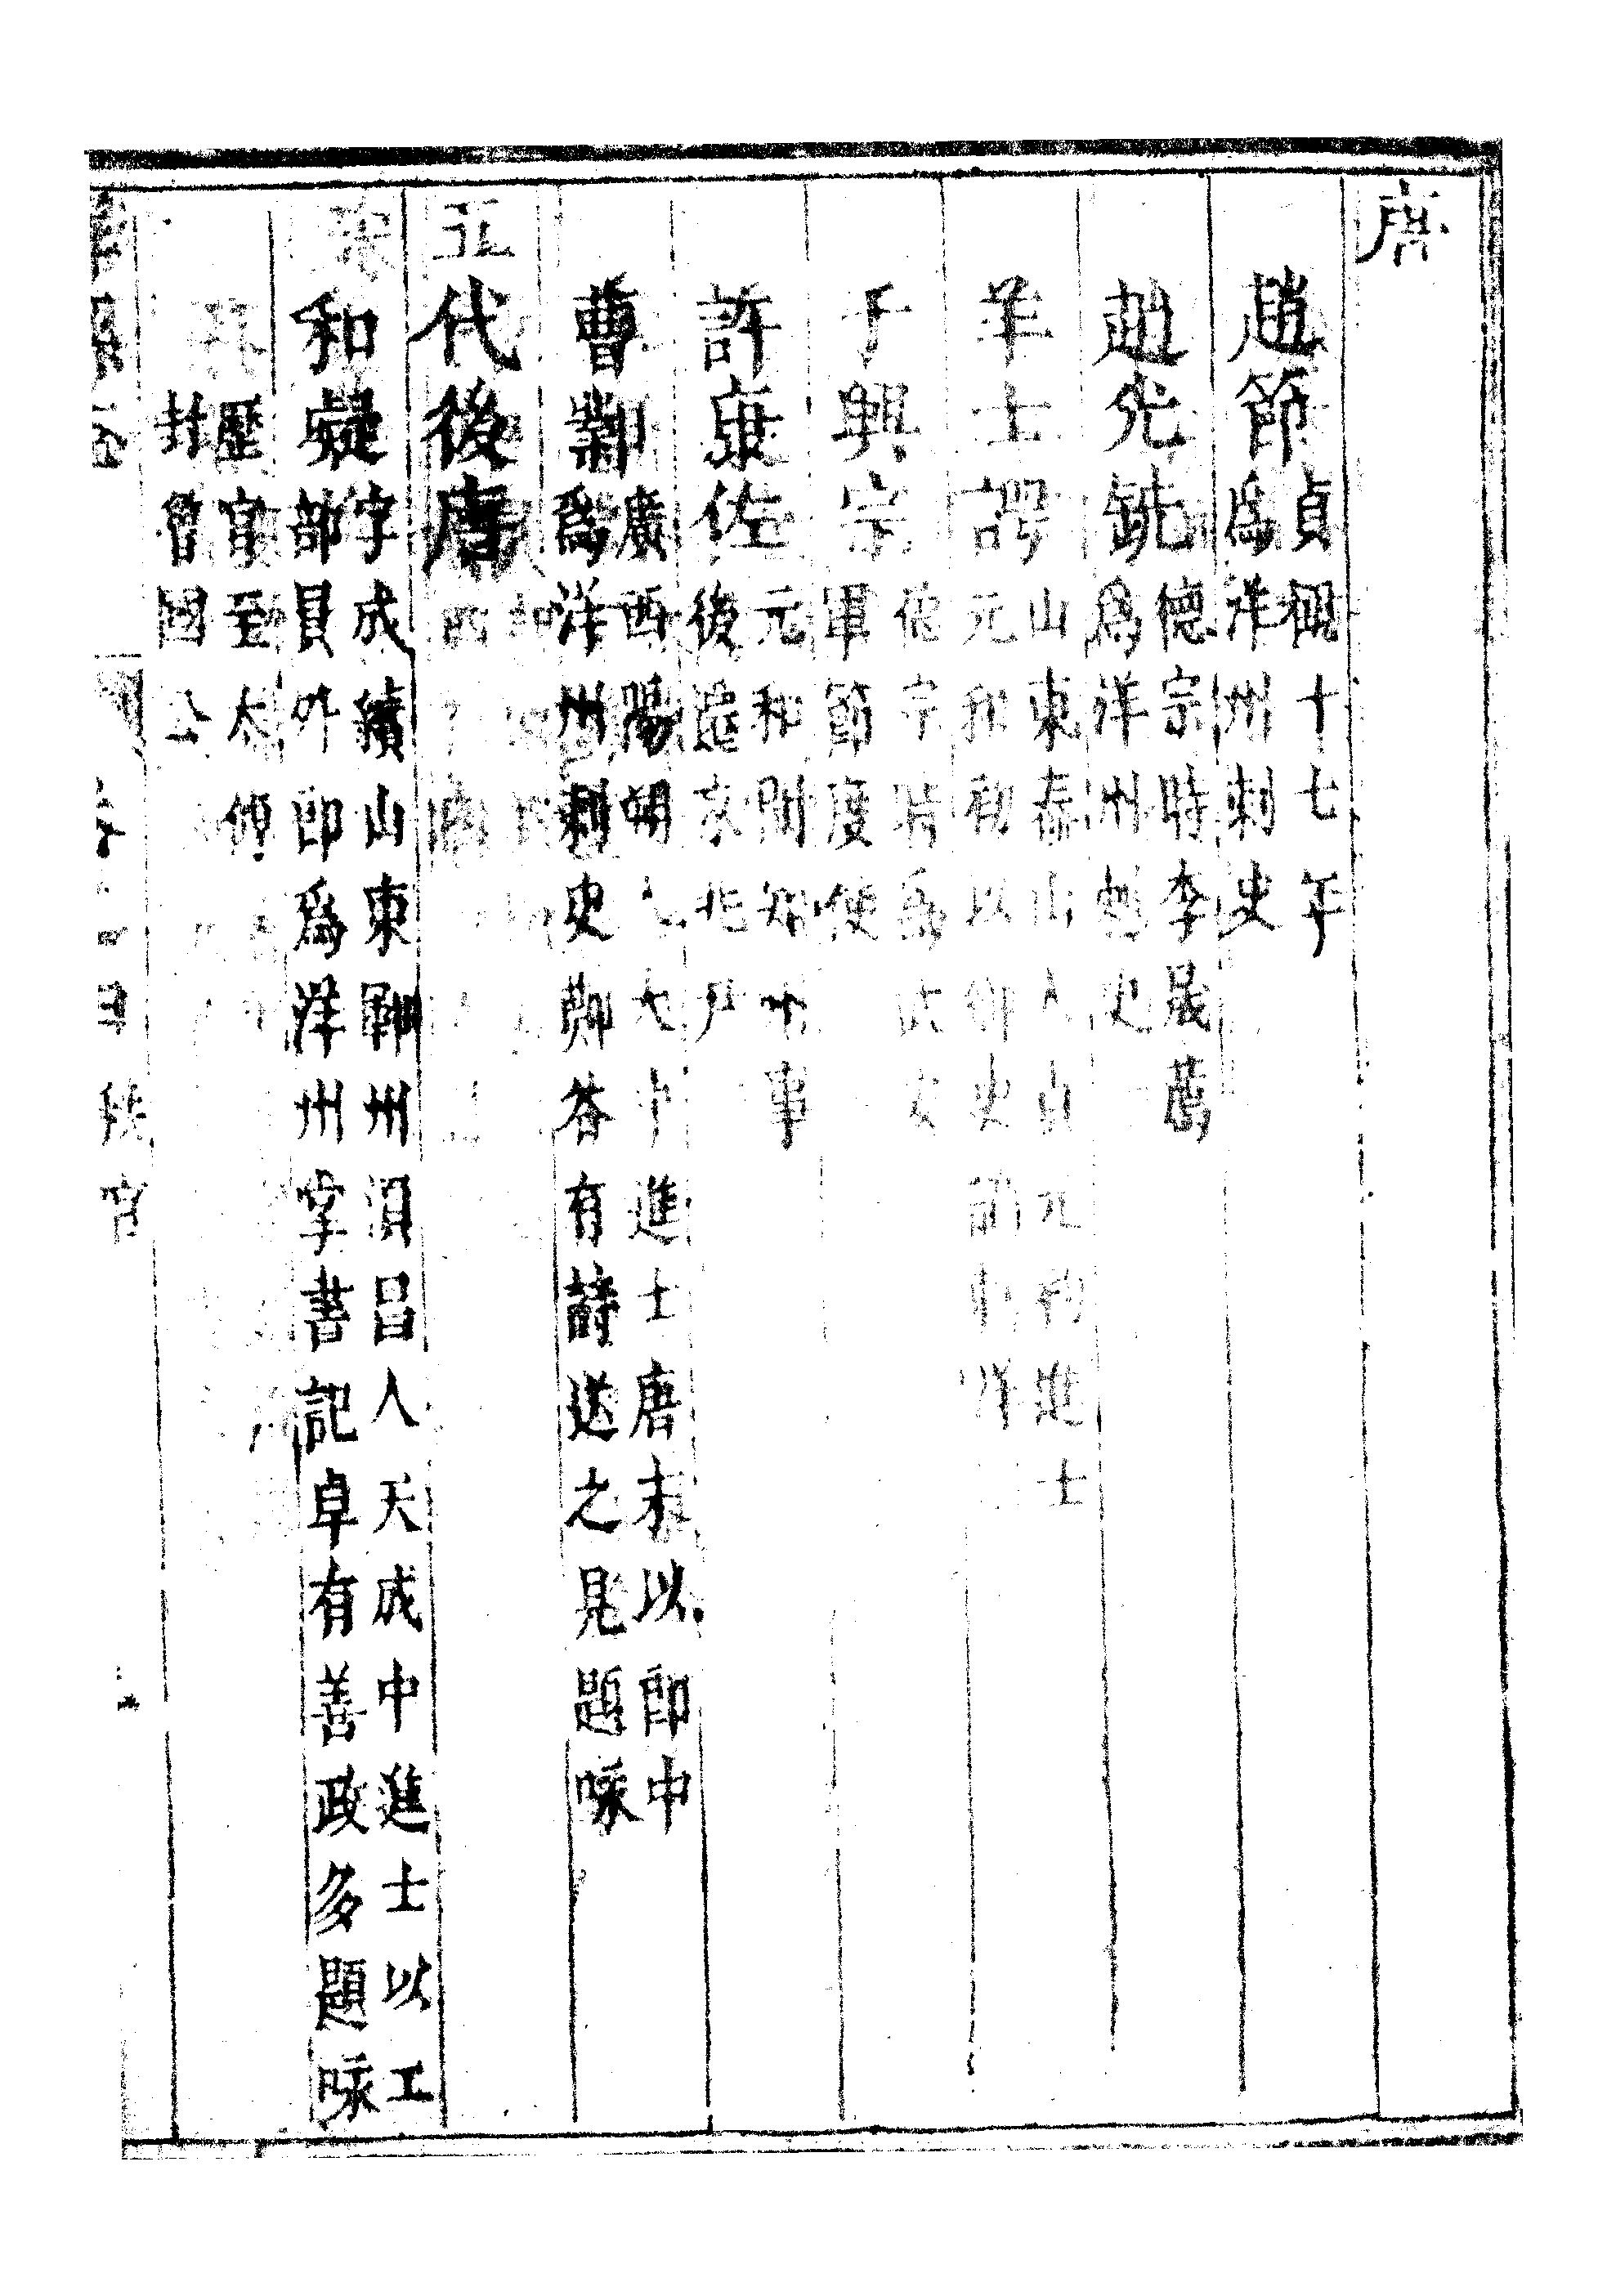 唐
趙節貞觀十七年
爲洋州刺史
趙光銑德宗時李晟薦
爲洋州刺史
羊士諤山東泰山人貞元初進士
元和初以御史謫刺洋
于興宗宗時爲
軍節度使
許康佐元和間知州事
後遷京兆尹
曹鄴廣西陽朔人大中進士唐末以郎中
爲洋州刺史鄭谷有詩送之見題咏
五代後唐
和凝字成績山東鄆州須昌人天成中進士以工
部員外郎爲洋州掌書記卓有善政多題咏
歷官至太傅
封魯國公
秩官